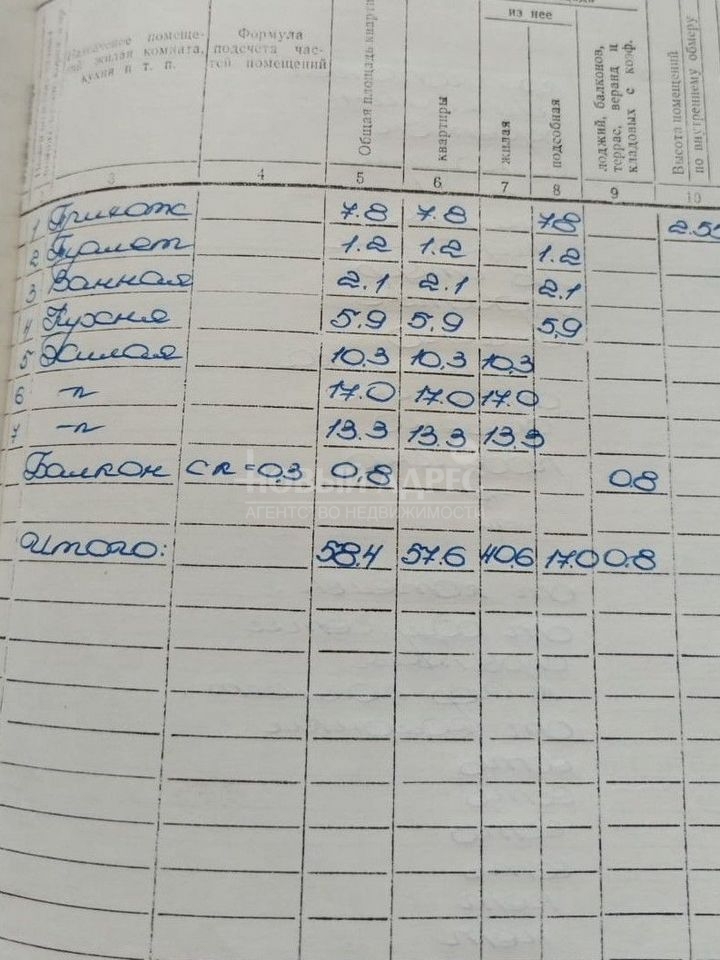 из нее
Назначение помеще-
ний жилая комната,
кухня и т. п.
Формула
подсчета час-
тей помещений
Общая площадь квартиры
квартиры
жилая
подсобная
лоджий, балконов,
террас, веранд и
кладовых с коэф.
Высота помещений
по внутреннему обмеру
3 4 5 6 7 8 9 10
1 Прихож 7.8 7.8 7.8 2.55
2 Туалет 1.2 1.2 1.2
3 Ванная 2.1 2.1 2.1
4 Кухня 5,9 5,9 5,9
5 Жилая 10,3 10,3 10,3
6 –"– 17.0 17.0 17.0
7 –"– 13.3 13.3 13.3
Балкон с к=0,3 0,8 0,8
НОВЫЙ АДРЕС
АГЕНТСТВО НЕДВИЖИМОСТИ
Итого: 58.4 57.6 40.6 17.0 0.8